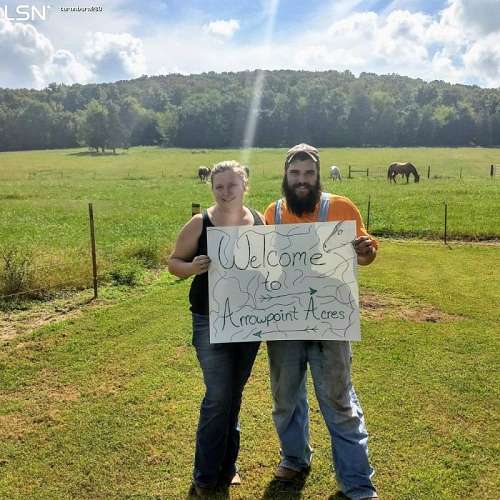 LSN
Welcome
to
Arrowpoint Acres